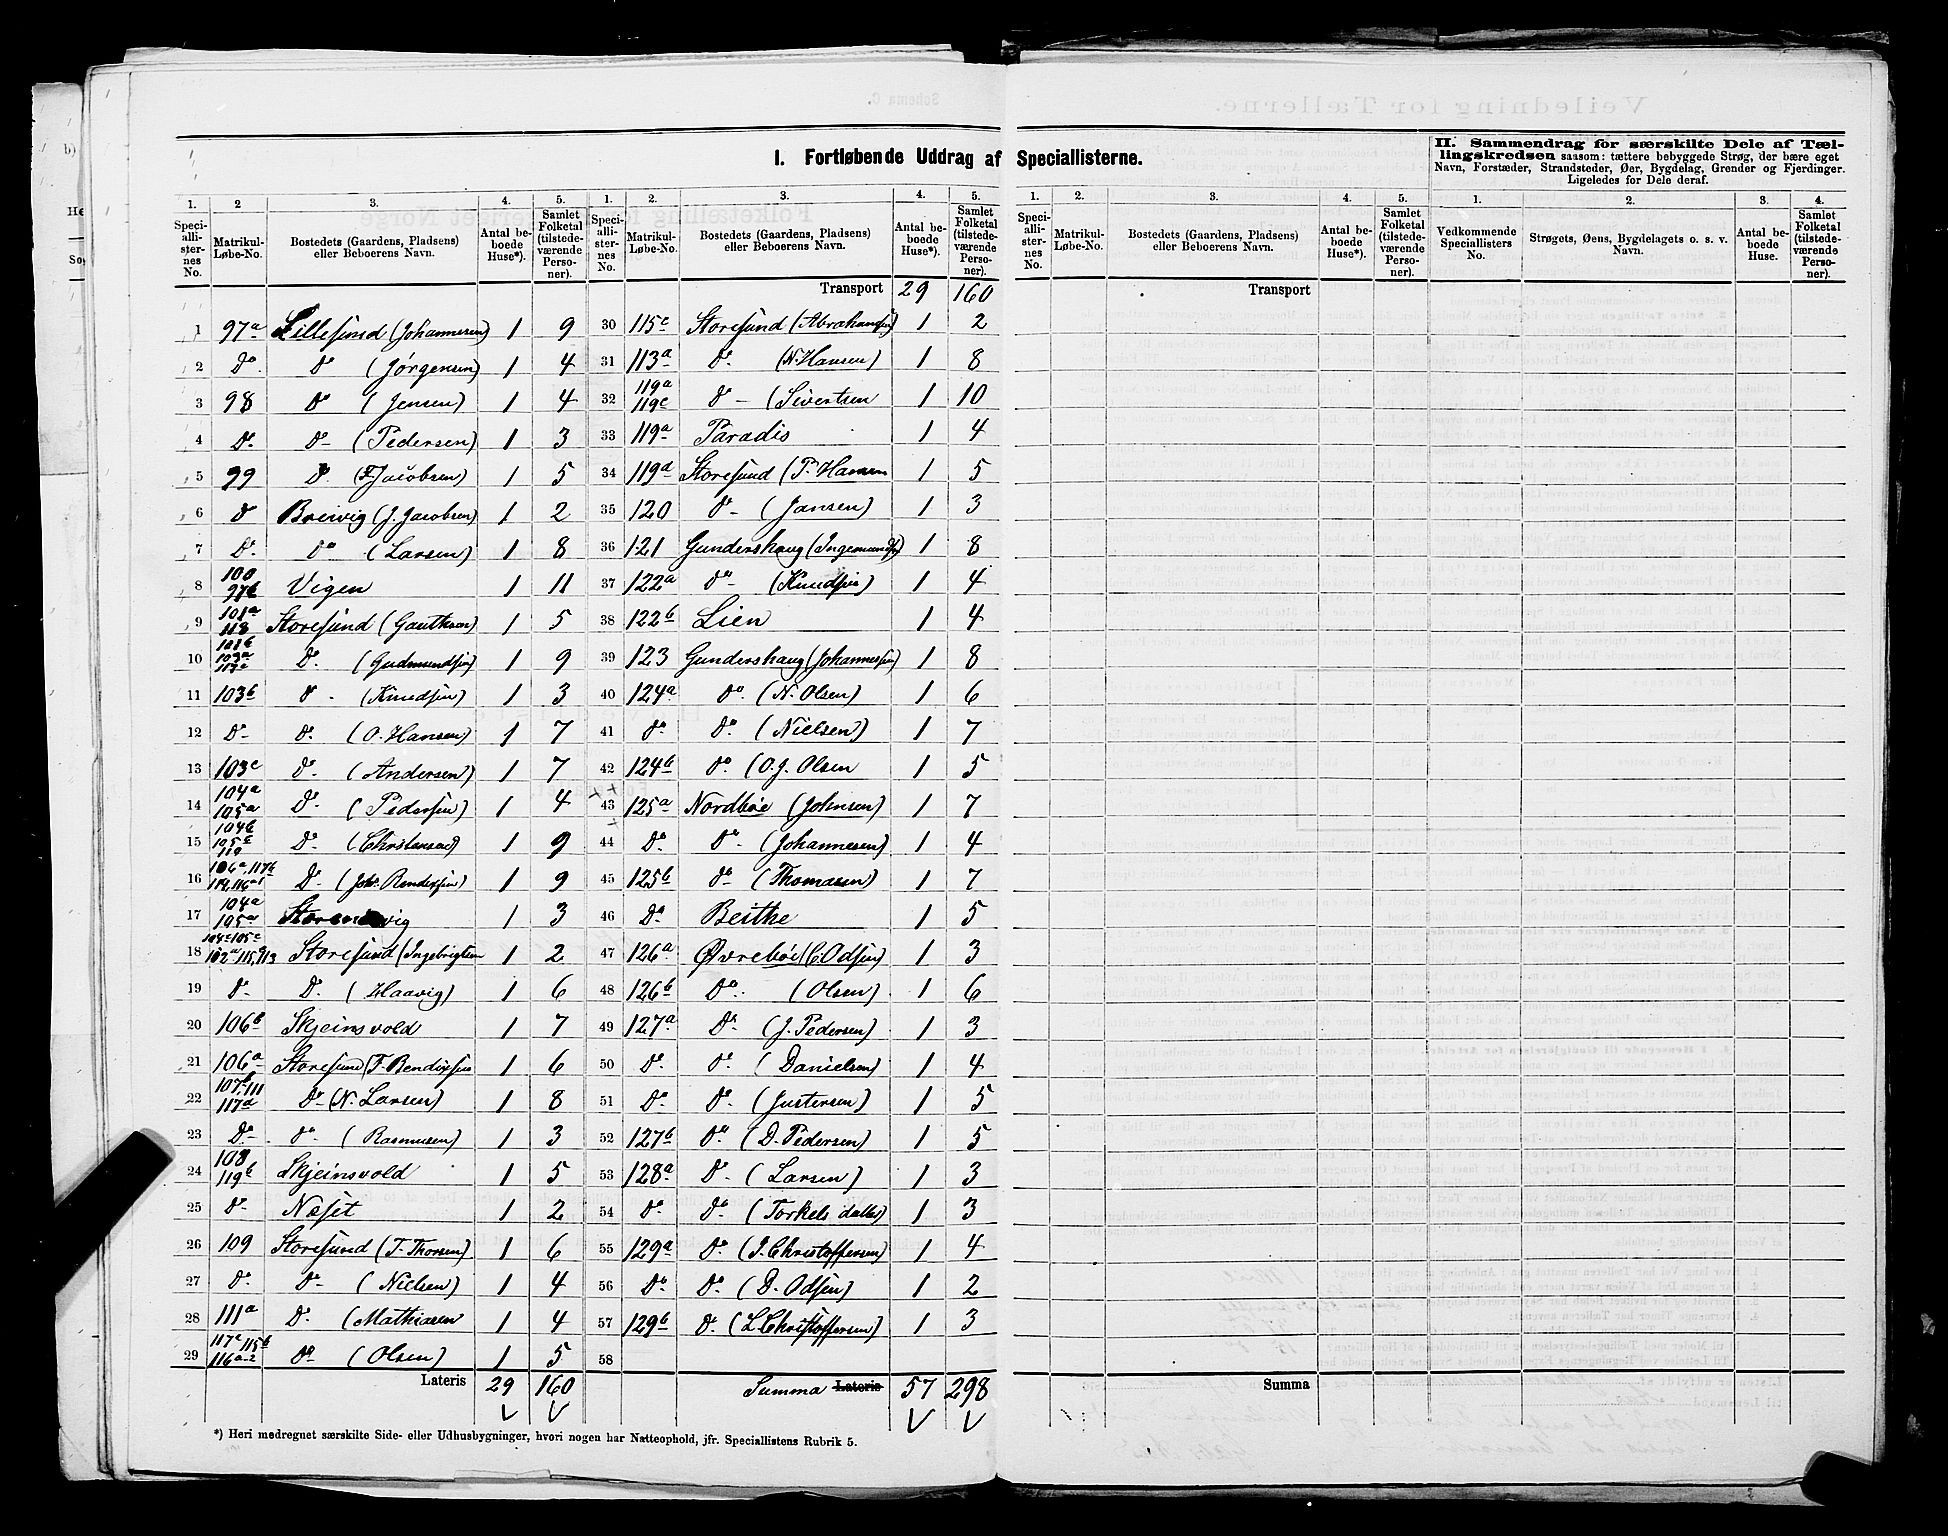 I. Fortløbende Uddrag af Speciallisterne.
1. 2 3. 4. 5.
Speciallisternes No. Matrikul-Løbe-No. Bostedets (Gaardens, Pladsens) eller Beboerens Navn. Antal beboede Huse*). Samlet Folketal (tilstedeværende Personer).
1 97a Lillesund (Johannesen) 1 9
2 Do. Do (Jørgensen) 1 4
3 98 Do (Jensen) 1 4
4 Do. Do- (Pedersen) 1 3
5 99 Do. (F. Jacobsen) 1 5
6 Do Breivig (J. Jacobsen) 1 2
7 Do. Do (Larsen) 1 8
8 100 97b Vigen 1 11
9 101a 118 Storesund (Gauthsen) 1 5
10 101b 103a 117c Do. (Gudmundsen) 1 9
11 103b Do - (Knudsen) 1 3
12 Do- Do. (O. Hansen) 1 7
13 103c Do. (Andersen) 1 7
14 104a 105a Do. (Pedersen) 1 4
15 104b 105b 110 Do. (Christensen) 1 9
16 106a, 117b Do- (Joh. Bendixsen) 1 9
17 104a 105a 1 3
18 104c 105c 102a 115, 113 Storesund (Ingebrigtsen 1 2
19 Do- Do. (Haavig) 1 6
20 106b Skjeinsvold 1 7
21 106a Storesund (T. Bendixsen 1 6
22 107, 111 117d Do- (N. Larsen) 1 8
23 Do- Do. (Rasmusen) 1 3
24 108 119b Skjeinsvold 1 5
25 Do- Næset 1 2
26 109 Storesund (T. Thorsen) 1 6
27 Do. Do- (Nielsen) 1 4
28 111a Do. (Mathiasen 1 4
29 117a 115b 116a-2 Do (Olsen) 1 5
Lateris 29 160
1. 2. 3. 4. 5.
Speciallisternes No. Matrikul-Løbe-No. Bostedets (Gaardens, Pladsens) eller Beboerens Navn. Antal beboede Huse*). Samlet Folketal (tilstedeværende Personer).
Transport 29 160
30 115c Storesund (Abrahamsen) 1 2
31 113a Do. (N. Hansen) 1 8
32 119a 119c Do - (Sivertsen 1 10
33 119a Paradis 1 4
34 119d Storesund (P. Hansen 1 5
35 120 Do- (Jansen) 1 3
36 121 Gundershaug (Ingemundsen) 1 8
37 122a Do- (Knudsen) 1 4
38 122b Lien 1 4
39 123 Gundershaug (Johannessen) 1 8
40 124a Do. (N. Olsen) 1 6
41 Do. Do. (Nielsen) 1 7
42 124b Do. (O.J. Olsen 1 5
43 125a Nordbøe (Johnsen) 1 7
44 Do. Do- (Johannesen) 1 4
45 125b Do- (Thomasen) 1 7
46 Do Beithe 1 5
47 126a Øvrebøe (C. Odsen) 1 3
48 126b Do. (Olsen) 1 6
49 127a Do- (J. Pedersen) 1 3
50 Do. Do. (Danielsen) 1 4
51 Do- Do- (Justersen) 1 5
52 127b Do. (D. Pedersen) 1 5
53 128a Do- (Larsen) 1 3
54 Do. Do. (Torkels datter) 1 3
55 129a Do. (J. Christoffersen) 1 4
56 Do. Do. (D. Odsen) 1 2
57 129b Do. (L. Christoffersen) 1 3
58
Summa Lateris 57 298
*) Heri medregnet særskilte Side- eller Udhusbygninger, hvori nogen har Natteophold, jfr. Speciallistens Rubrik 5.
1. 2. 3. 4. 5.
Speciallisternes No. Matrikul-Løbe-No. Bostedets (Gaardens, Pladsens) eller Beboerens Navn. Antal beboede Huse*). Samlet Folketal (tilstedeværende Personer).
Transport
Summa
II. Sammendrag for særskilte Dele af Tællingskredsen saasom: tættere bebyggede Strøg, der bære eget
Navn, Forstæder, Strandsteder, Øer, Bygdelag, Grender og Fjerdinger.
Ligeledes for Dele deraf.
1. 2. 3. 4.
Vedkommende Speciallisters No. Strøgets, Øens, Bygdelagets o. s. v. Navn. Antal beboede Huse. Samlet Folketal (tilstedeværende Personer).